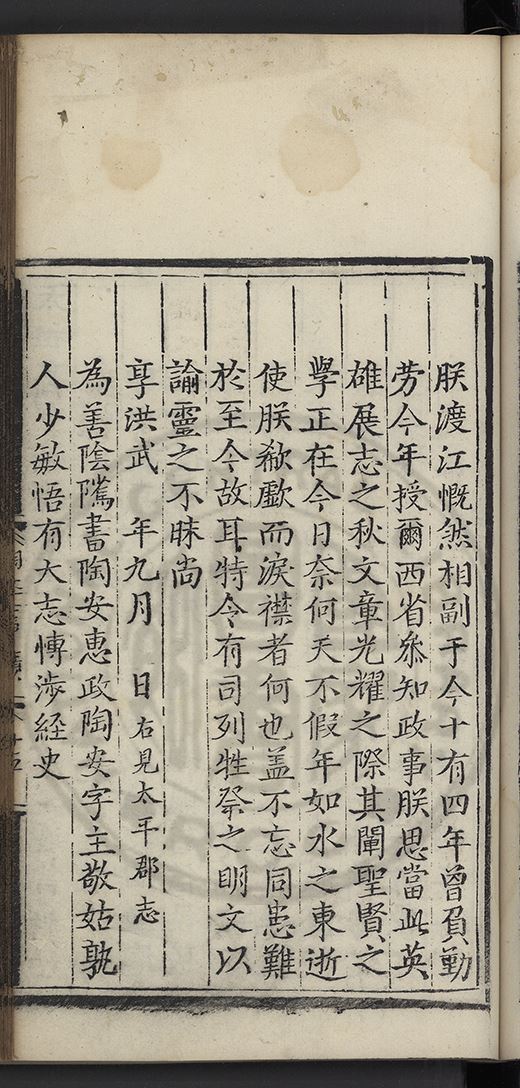 朕渡江慨然相副于今十有四年曾負勤
劳今年授爾西省叅知政事朕思當此英
雄展志之秋文章光耀之際其闡聖賢之
學正在今日奈何天不假年如水之東逝
使朕欷歔而淚襟者何也盖不忘同患難
於至今故耳特令有司列牲祭之明文以
諭靈之不昧尚
享洪武　年九月　日右見太平郡志
為善陰隲書陶安惠政陶安字主敬姑孰
人少敏悟有大志慱渉経史